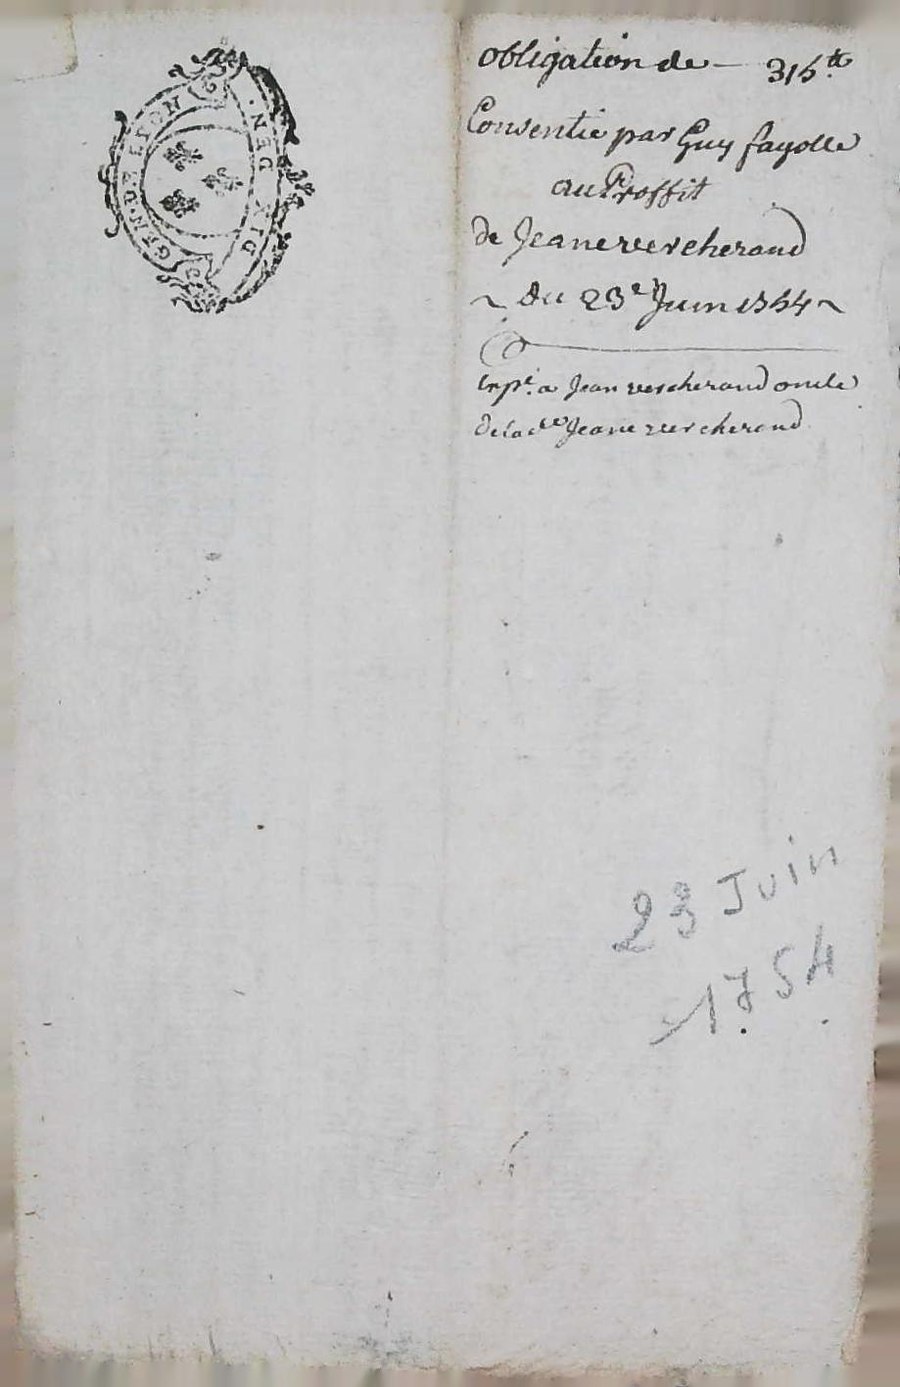 GEN. DE LYON
DEN
obligation de — 315.tt
Consentie par Guy fayolle
au Proffit
de Jeane vercherand
~ du 23e Juin 1754 ~
Expé. a Jean vercherand oncle
de lade Jeane vercherand
23 Juin
1754